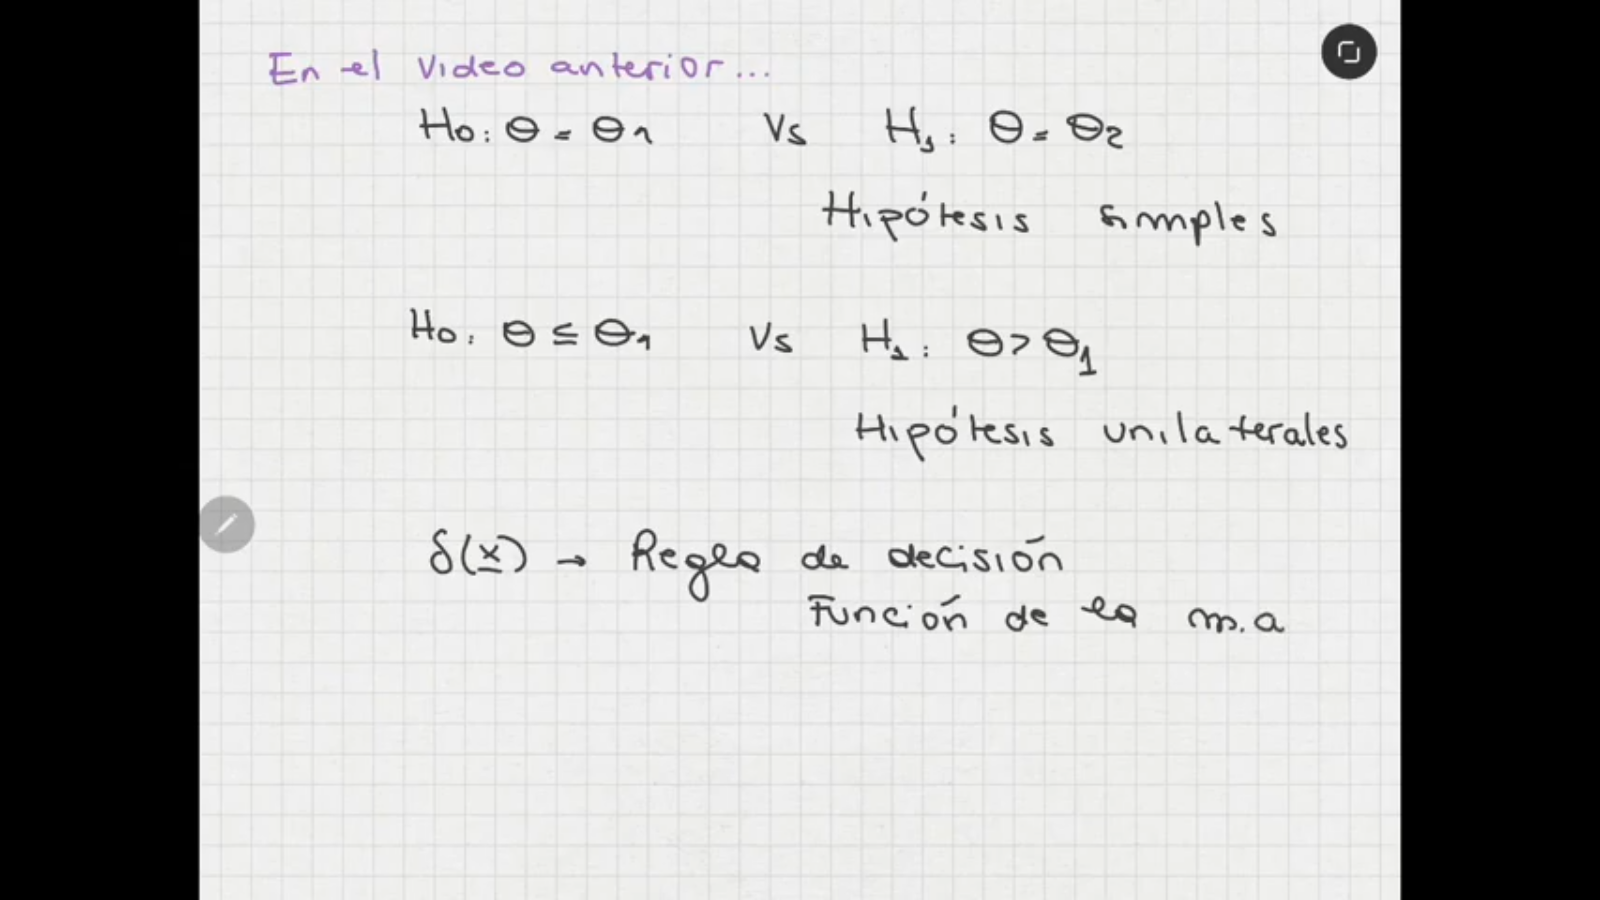 En el video anterior...
H₀: θ = θ₁ Vs H₁: θ = θ₂
Hipótesis simples
H₀: θ ≤ θ₁ Vs H₁: θ > θ₁
Hipótesis unilaterales
δ(x̲) → Regla de decisión
Función de la m.a